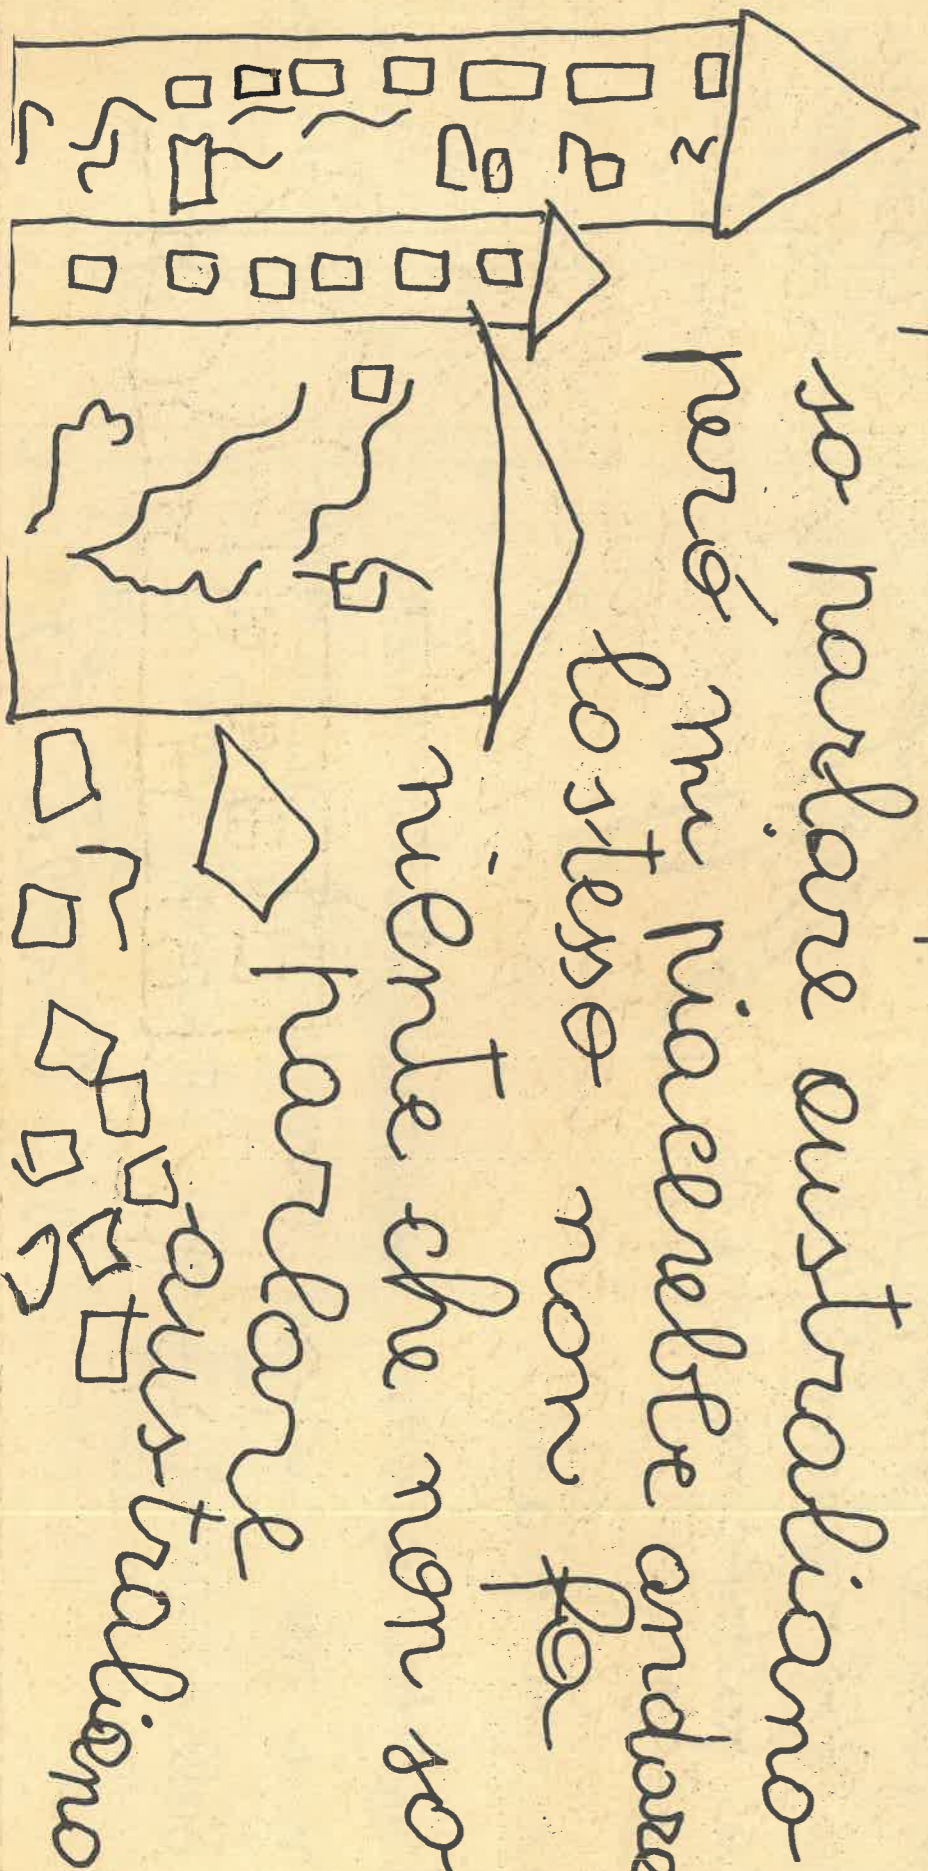 so parlare australiano
peró mi piacerebbe andare
lostesso non fa
niente che non so
parlare
australiano